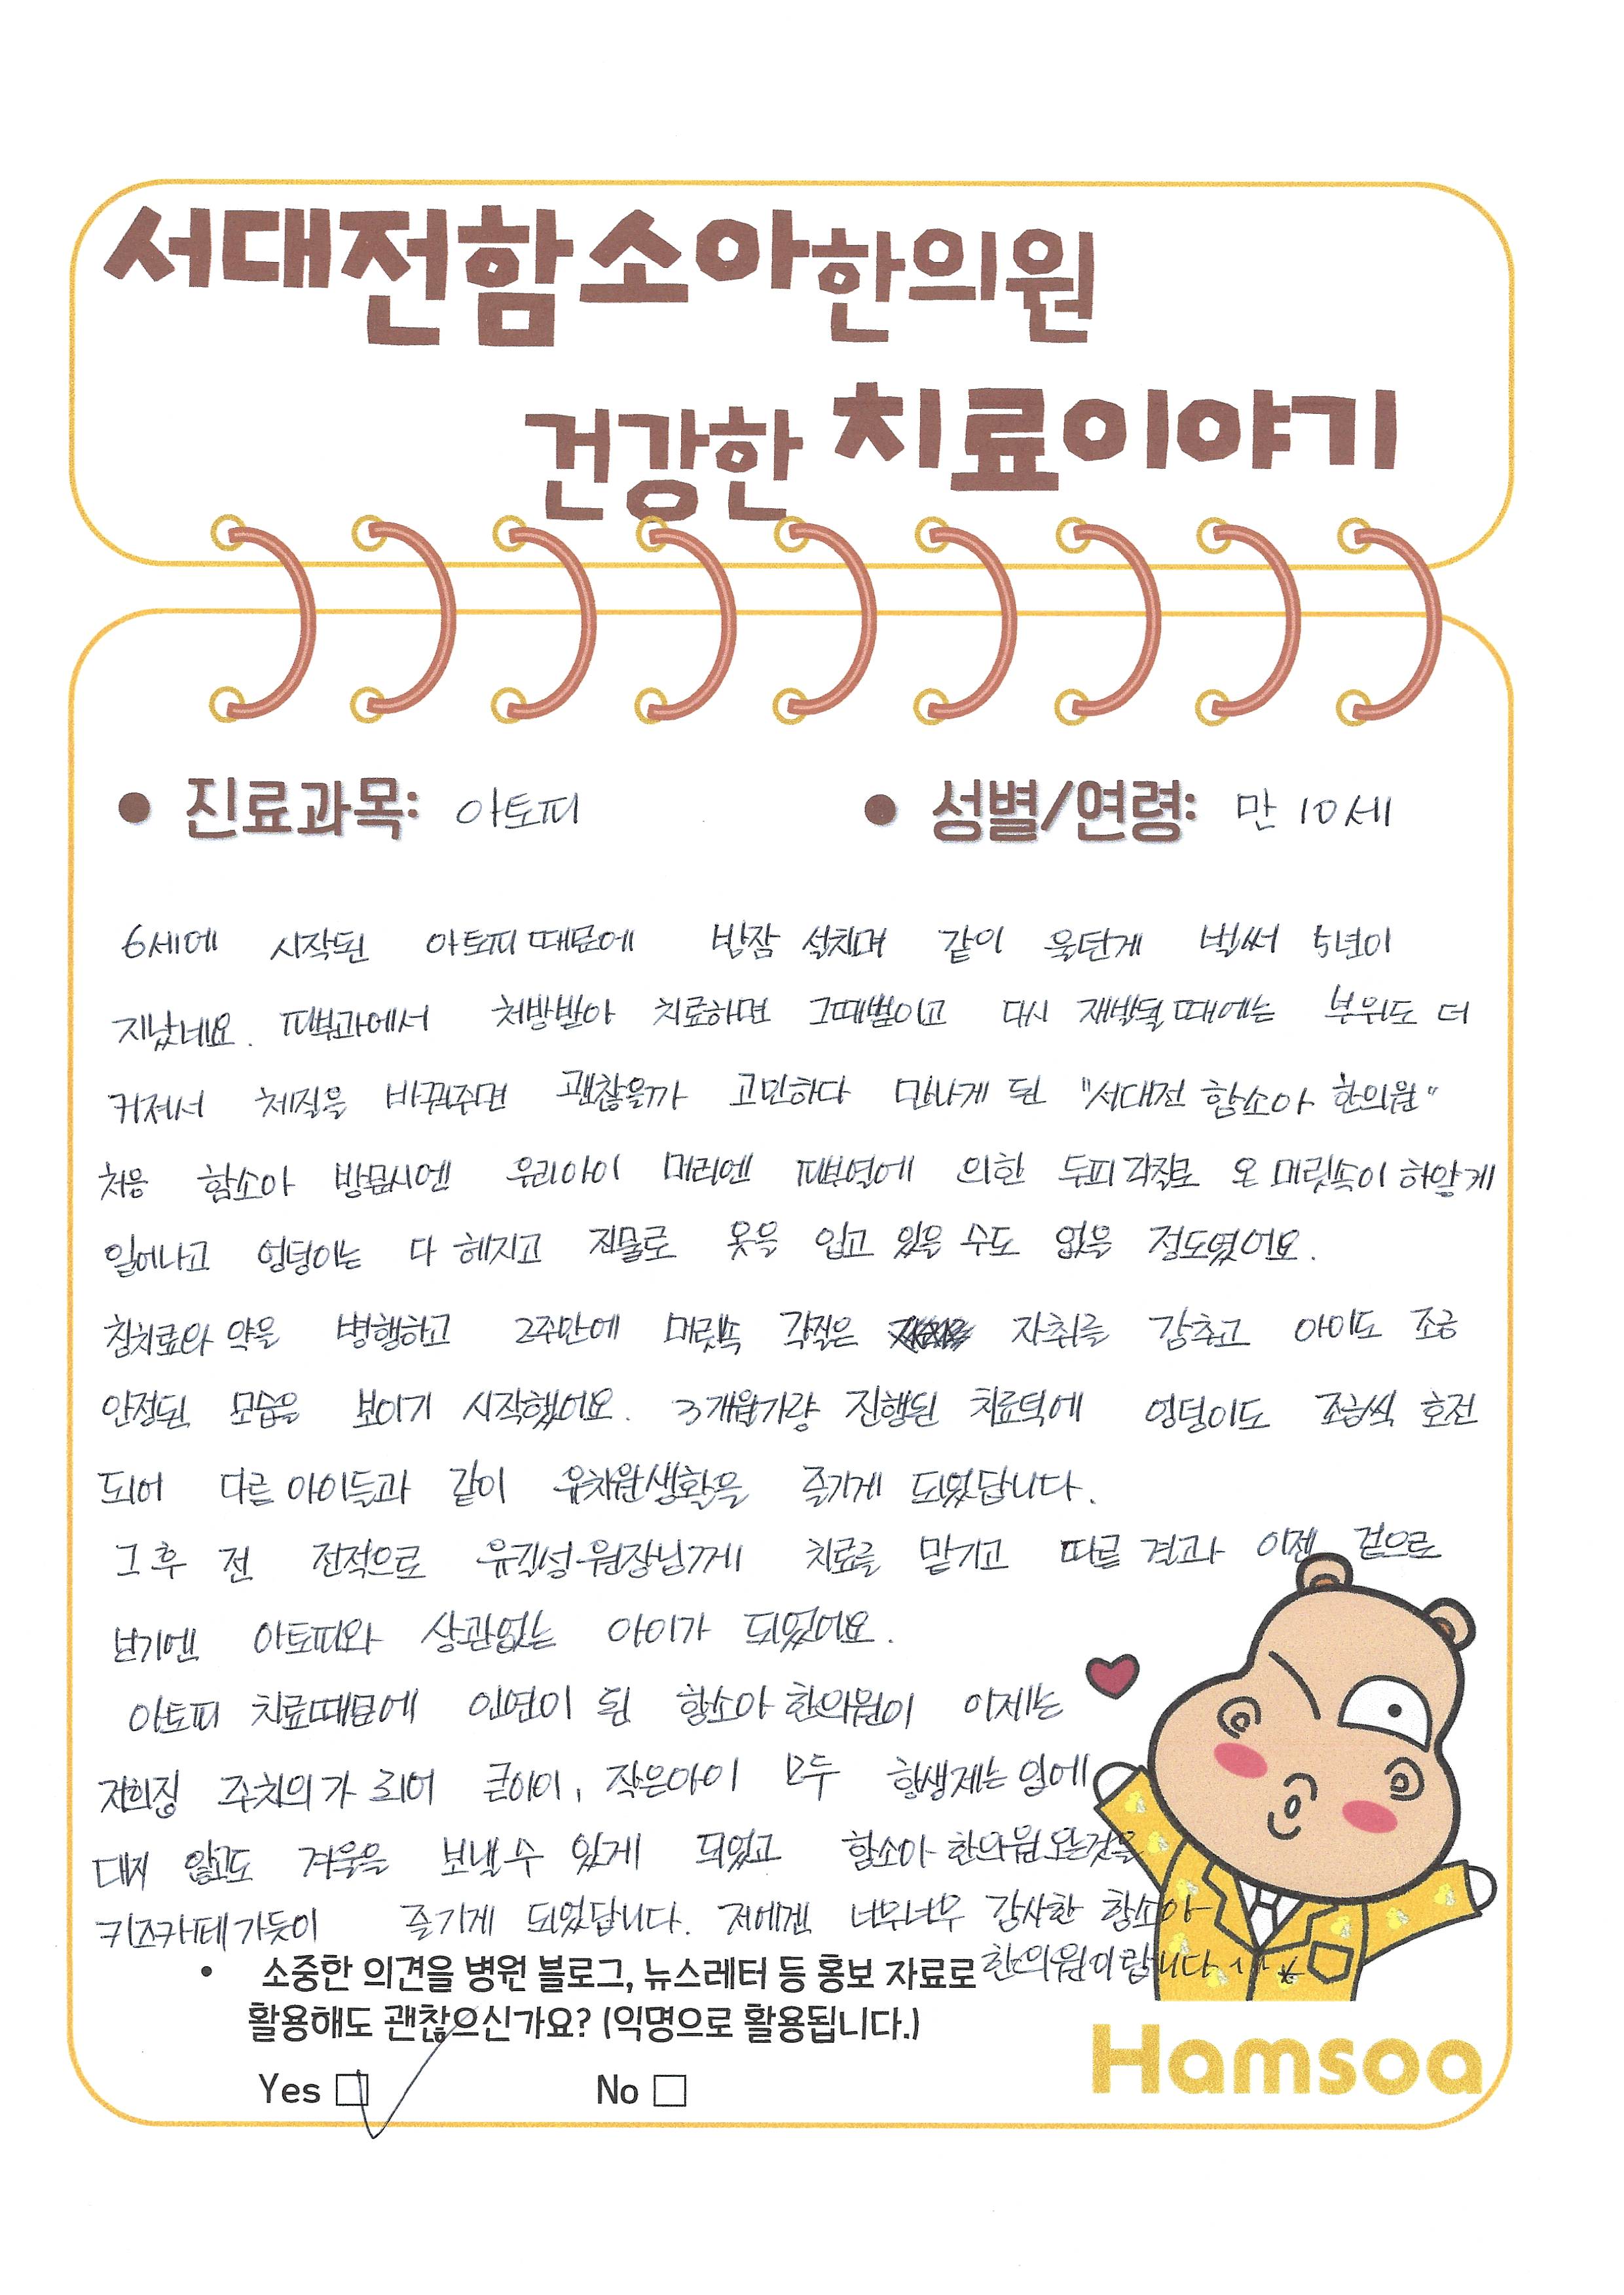 서대전함소아한의원
건강한 치료이야기
• 진료과목: 아토피 • 성별/연령: 만 10세
6세에 시작된 아토피 때문에 밤잠 설치며 같이 울던게 벌써 5년이
지났네요. 피부과에서 처방받아 치료하면 그때뿐이고 다시 재발될 때에는 부위도 더
커져서 체질을 바꿔주면 괜찮을까 고민하다 만나게 된 "서대전 함소아 한의원"
처음 함소아 방문시엔 우리아이 머리엔 피부열에 의한 두피각질로 온 머릿속이 하얗게
일어나고 엉덩이는 다 헤지고 진물로 옷을 입고 있을 수도 없을 정도였어요.
침치료와 약을 병행하고 2주만에 머릿속 각질은 자취를 감추고 아이도 조금
안정된 모습을 보이기 시작했어요. 3개월가량 진행된 치료덕에 엉덩이도 조금씩 호전
되어 다른 아이들과 같이 유치원생활을 즐기게 되었답니다.
그 후 전 전적으로 유길성 원장님께 치료를 맡기고 따른 결과 이젠 겉으로
보기엔 아토피와 상관없는 아이가 되었어요.
아토피 치료때문에 인연이 된 함소아 한의원이 이제는
저희집 주치의가 되어 큰아이, 작은아이 모두 항생제는 입에
대지 않고도 겨울을 보낼 수 있게 되었고 함소아 한의원 오는것을
키즈카페 가듯이 즐기게 되었답니다. 저에겐 너무너무 감사한 함소아
한의원이랍니다 ^^*
• 소중한 의견을 병원 블로그, 뉴스레터 등 홍보 자료로
활용해도 괜찮으신가요? (익명으로 활용됩니다.)
Yes □ No □
Hamsoa